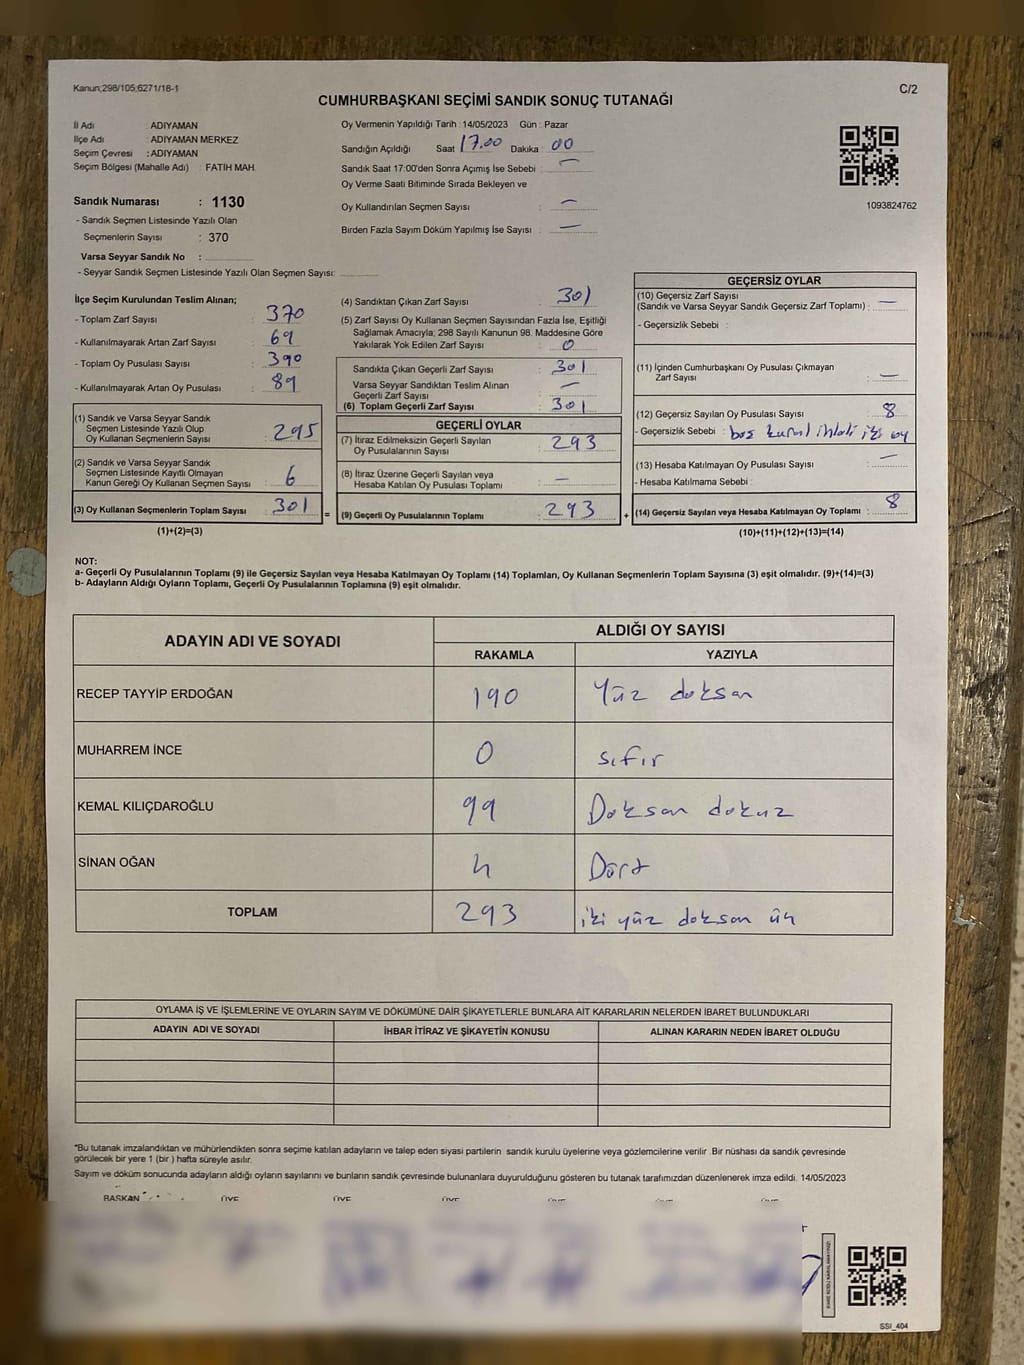 Kanun;298/105;6271/18-1
C/2
CUMHURBAŞKANI SEÇİMİ SANDIK SONUÇ TUTANAĞI
İl Adı : ADIYAMAN
İlçe Adı : ADIYAMAN MERKEZ
Seçim Çevresi : ADIYAMAN
Seçim Bölgesi (Mahalle Adı) : FATİH MAH.
Sandık Numarası : 1130
- Sandık Seçmen Listesinde Yazılı Olan
Seçmenlerin Sayısı : 370
Varsa Seyyar Sandık No :
- Seyyar Sandık Seçmen Listesinde Yazılı Olan Seçmen Sayısı:
Oy Vermenin Yapıldığı Tarih : 14/05/2023 Gün : Pazar
Sandığın Açıldığı Saat 17.00 Dakika : 00
Sandık Saat 17:00'den Sonra Açımış İse Sebebi : —
Oy Verme Saati Bitiminde Sırada Bekleyen ve
Oy Kullandırılan Seçmen Sayısı : —
Birden Fazla Sayım Döküm Yapılmış İse Sayısı : —
1093824762
İlçe Seçim Kurulundan Teslim Alınan;
- Toplam Zarf Sayısı : 370
- Kullanılmayarak Artan Zarf Sayısı : 69
- Toplam Oy Pusulası Sayısı : 390
- Kullanılmayarak Artan Oy Pusulası : 89
(1) Sandık ve Varsa Seyyar Sandık
Seçmen Listesinde Yazılı Olup
Oy Kullanan Seçmenlerin Sayısı : 295
(2) Sandık ve Varsa Seyyar Sandık
Seçmen Listesinde Kayıtlı Olmayan
Kanun Gereği Oy Kullanan Seçmen Sayısı : 6
(3) Oy Kullanan Seçmenlerin Toplam Sayısı : 301 =
(1)+(2)=(3)
(4) Sandıktan Çıkan Zarf Sayısı : 301
(5) Zarf Sayısı Oy Kullanan Seçmen Sayısından Fazla İse, Eşitliği
Sağlamak Amacıyla; 298 Sayılı Kanunun 98. Maddesine Göre
Yakılarak Yok Edilen Zarf Sayısı : 0
Sandıkta Çıkan Geçerli Zarf Sayısı : 301
Varsa Seyyar Sandıktan Teslim Alınan
Geçerli Zarf Sayısı : —
(6) Toplam Geçerli Zarf Sayısı : 301
GEÇERLİ OYLAR
(7) İtiraz Edilmeksizin Geçerli Sayılan
Oy Pusulalarının Sayısı : 293
(8) İtiraz Üzerine Geçerli Sayılan veya
Hesaba Katılan Oy Pusulası Toplamı : —
(9) Geçerli Oy Pusulalarının Toplamı : 293 +
GEÇERSİZ OYLAR
(10) Geçersiz Zarf Sayısı
(Sandık ve Varsa Seyyar Sandık Geçersiz Zarf Toplamı) : —
- Geçersizlik Sebebi :
(11) İçinden Cumhurbaşkanı Oy Pusulası Çıkmayan
Zarf Sayısı : —
(12) Geçersiz Sayılan Oy Pusulası Sayısı : 8
- Geçersizlik Sebebi : boş kural ihlali iki oy
(13) Hesaba Katılmayan Oy Pusulası Sayısı : —
- Hesaba Katılmama Sebebi :
(14) Geçersiz Sayılan veya Hesaba Katılmayan Oy Toplamı : 8
(10)+(11)+(12)+(13)=(14)
NOT:
a- Geçerli Oy Pusulalarının Toplamı (9) ile Geçersiz Sayılan veya Hesaba Katılmayan Oy Toplamı (14) Toplamları, Oy Kullanan Seçmenlerin Toplam Sayısına (3) eşit olmalıdır. (9)+(14)=(3)
b- Adayların Aldığı Oyların Toplamı, Geçerli Oy Pusulalarının Toplamına (9) eşit olmalıdır.
ADAYIN ADI VE SOYADI
ALDIĞI OY SAYISI
RAKAMLA YAZIYLA
RECEP TAYYİP ERDOĞAN 190 Yüz doksan
MUHARREM İNCE 0 sıfır
KEMAL KILIÇDAROĞLU 99 Doksan dokuz
SİNAN OĞAN 4 Dört
TOPLAM 293 iki yüz doksan üç
OYLAMA İŞ VE İŞLEMLERİNE VE OYLARIN SAYIM VE DÖKÜMÜNE DAİR ŞİKAYETLERLE BUNLARA AİT KARARLARIN NELERDEN İBARET BULUNDUKLARI
ADAYIN ADI VE SOYADI İHBAR İTİRAZ VE ŞİKAYETİN KONUSU ALINAN KARARIN NEDEN İBARET OLDUĞU
*Bu tutanak imzalandıktan ve mühürlendikten sonra seçime katılan adayların ve talep eden siyasi partilerin sandık kurulu üyelerine veya gözlemcilerine verilir. Bir nüshası da sandık çevresinde
görülecek bir yere 1 (bir ) hafta süreyle asılır.
Sayım ve döküm sonucunda adayların aldığı oyların sayılarını ve bunların sandık çevresinde bulunanlara duyurulduğunu gösteren bu tutanak tarafımızdan düzenlenerek imza edildi. 14/05/2023
BAŞKAN ÜYE ÜYE ÜYE ÜYE ÜYE ÜYE
SSI_404